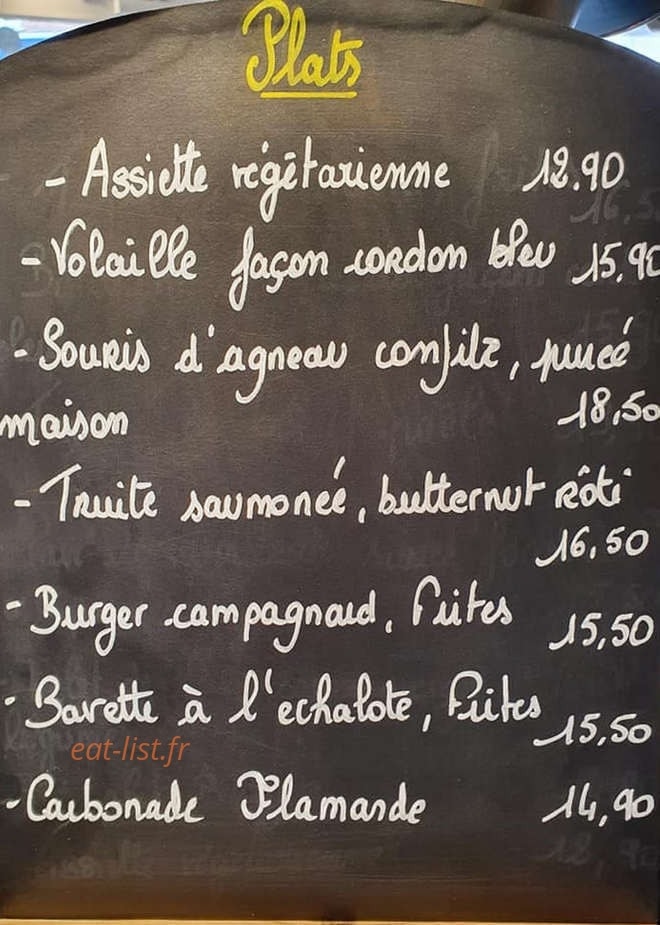 Plats
- Assiette végétarienne 12.90
- Volaille façon cordon bleu 15,90
- Souris d'agneau confite, purée
maison 18,50
- Truite saumonée, butternut rôti
16,50
- Burger campagnard, Frites 15,50
- Bavette à l'echalote, Frites 15,50
eat-list.fr
- Carbonade Flamande 14,90